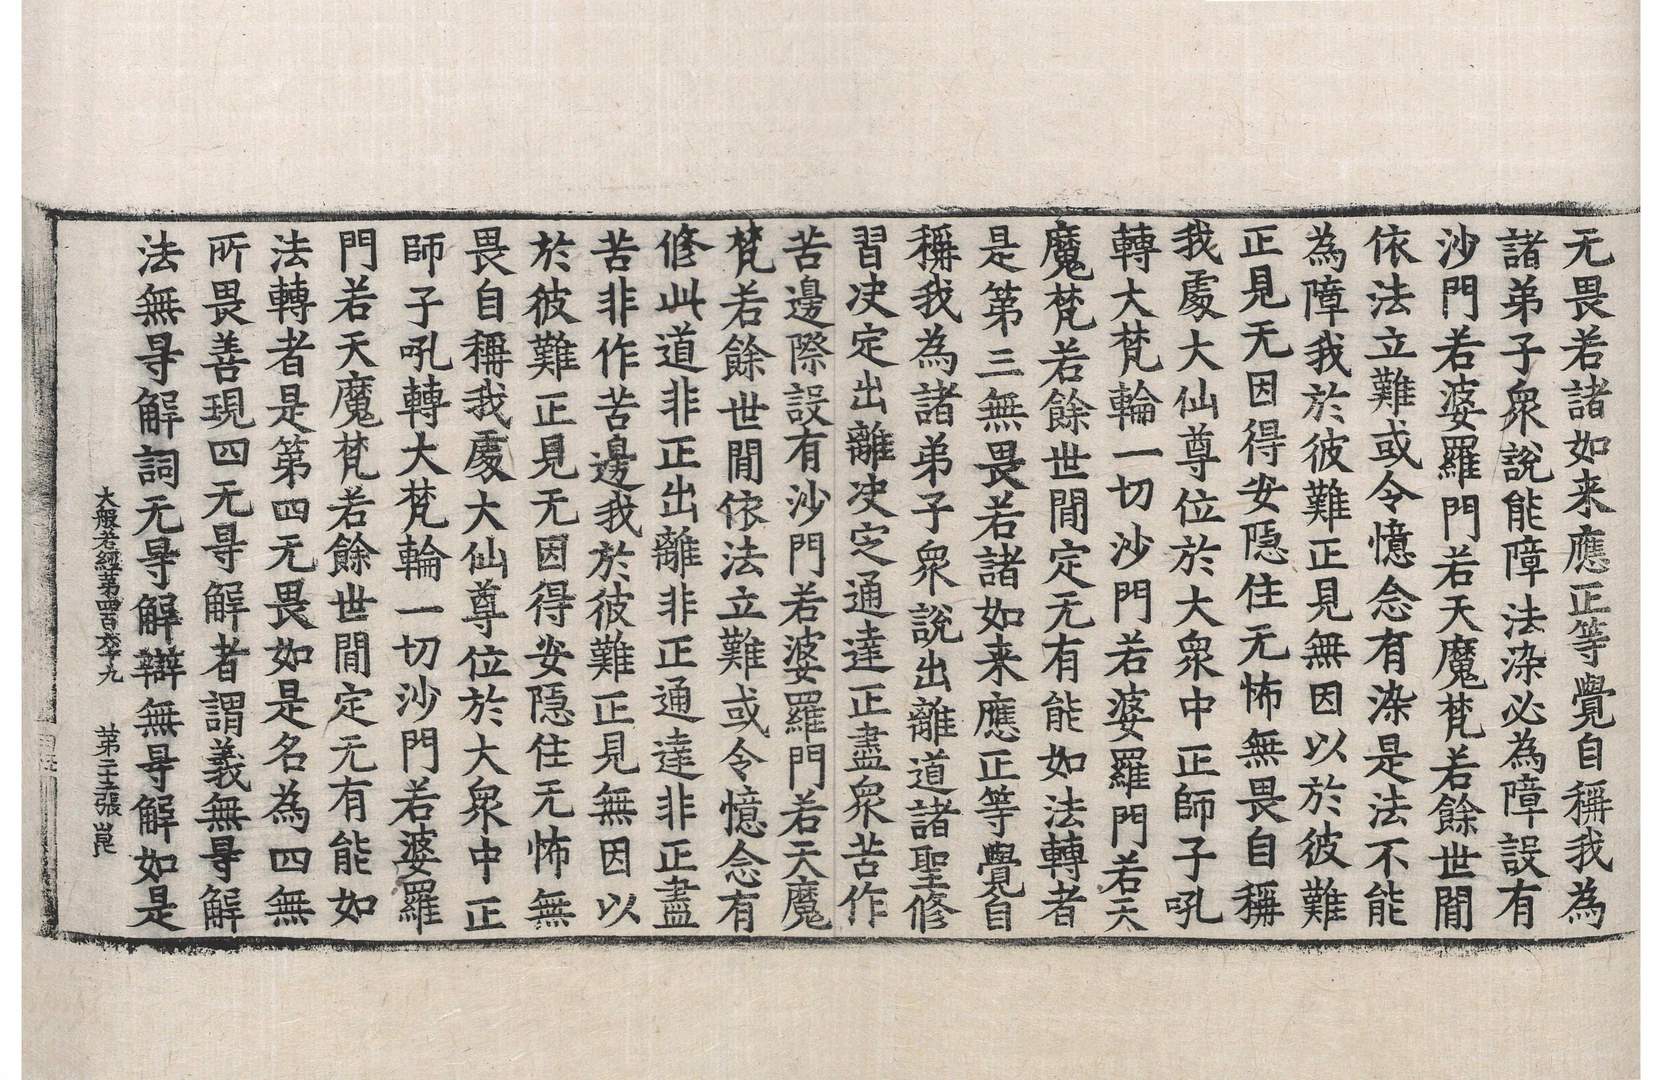 无畏若諸如来應正等覺自稱我為
諸弟子衆說能障法染必為障設有
沙門若婆羅門若天魔梵若餘世閒
依法立難或令憶念有染是法不能
為障我於彼難正見無因以於彼難
正見无因得安隱住无怖無畏自稱
我處大仙尊位於大衆中正師子吼
轉大梵輪一切沙門若婆羅門若天
魔梵若餘世閒定无有能如法轉者
是第三無畏若諸如来應正等覺自
稱我為諸弟子衆說出離道諸聖修
習决定出離决定通達正盡衆苦作
苦邊際設有沙門若婆羅門若天魔
梵若餘世閒依法立難或令憶念有
修此道非正出離非正通達非正盡
苦非作苦邊我於彼難正見無因以
於彼難正見无因得安隱住无怖無
畏自稱我處大仙尊位於大衆中正
師子吼轉大梵輪一切沙門若婆羅
門若天魔梵若餘世閒定无有能如
法轉者是第四无畏如是名為四無
所畏善現四无㝵解者謂義無㝵解
法無㝵解詞无㝵解辯無㝵解如是
大般若經第四百六十九 第二十三張 崑